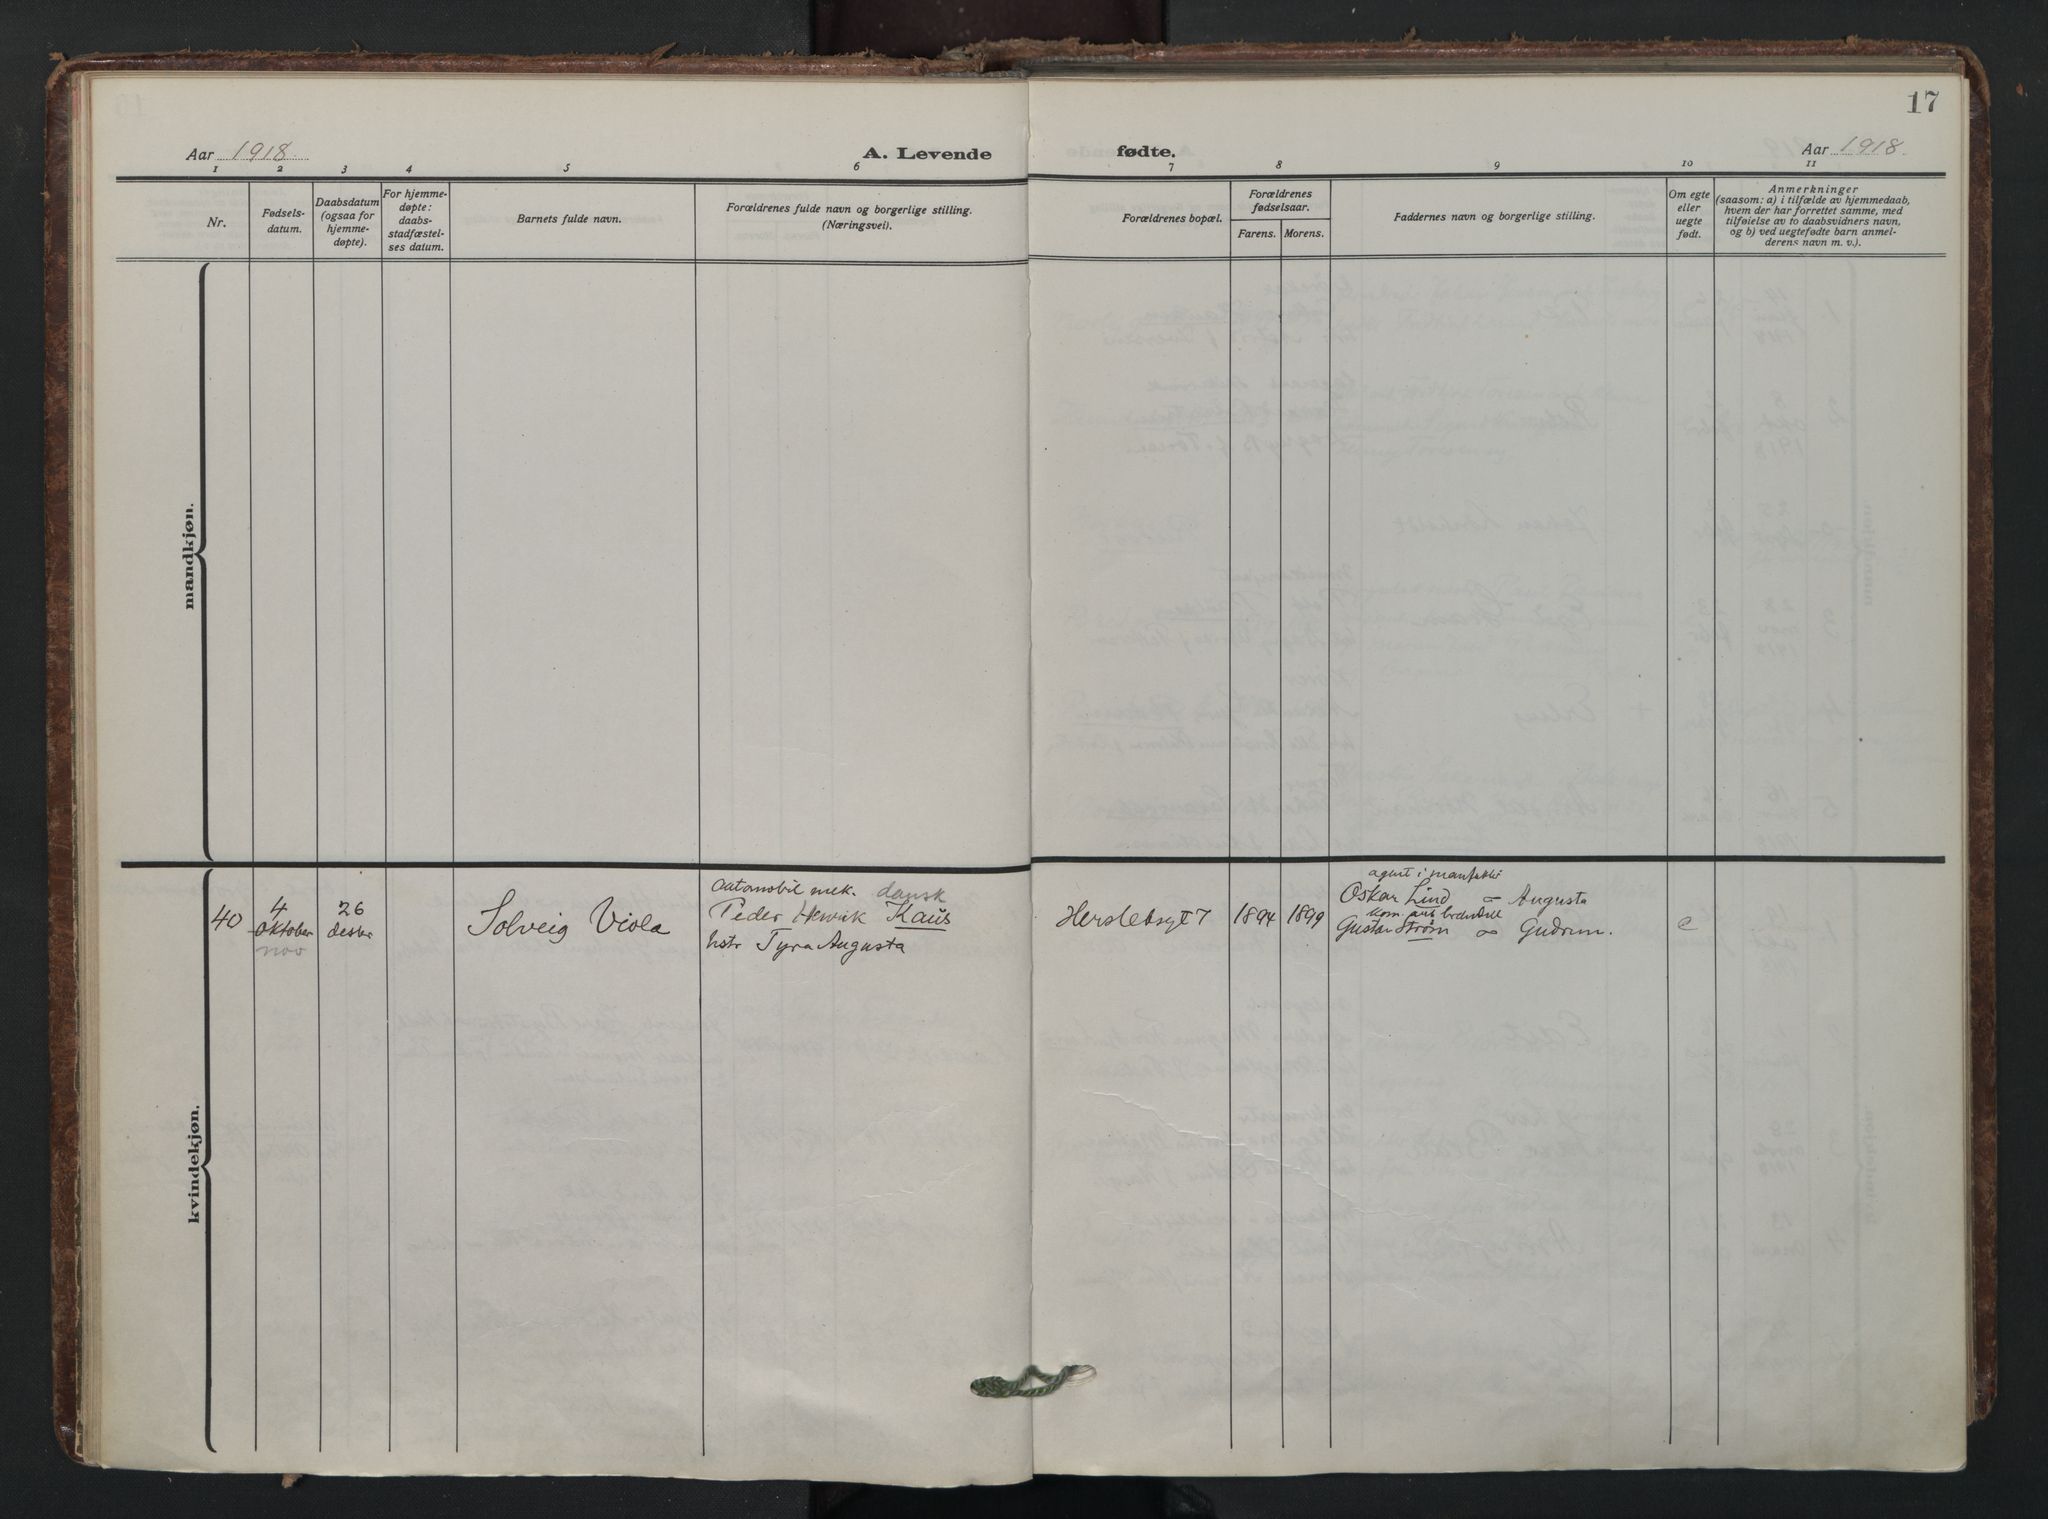 17
Aar 1918
A. Levende
fødte.
Aar 1918.
1 2 3 4 5 6 7 8 9 10 11
Nr.
Fødsels-
datum.
Daabsdatum
(ogsaa for
hjemme-
døpte).
For hjemme-
døpte:
daabs-
stadfæstel-
ses datum.
Barnets fulde navn.
Forældrenes fulde navn og borgerlige stilling.
(Næringsvei).
Forældrenes bopæl.
Forældrenes
fødselsaar.
Farens. Morens.
Faddernes navn og borgerlige stilling.
Om egte
eller
uegte
født.
Anmerkninger
(saasom: a) i tilfælde av hjemmedaab,
hvem der har forrettet samme, med
tilføielse av to daabsvidners navn,
og b) ved uegtefødte barn anmel-
derens navn m. v.).
mandkjøn.
kvindekjøn.
40
4
oktober
nov
26
desbr
Solveig Viola
automobil mek. dansk
Peder Henrik Kaus
hstr Tyra Augusta
Herslebsgt 7
1894
1899
agent i manufaktur
Oskar Lind Augusta
Gustav Strøm Gudrun.
e